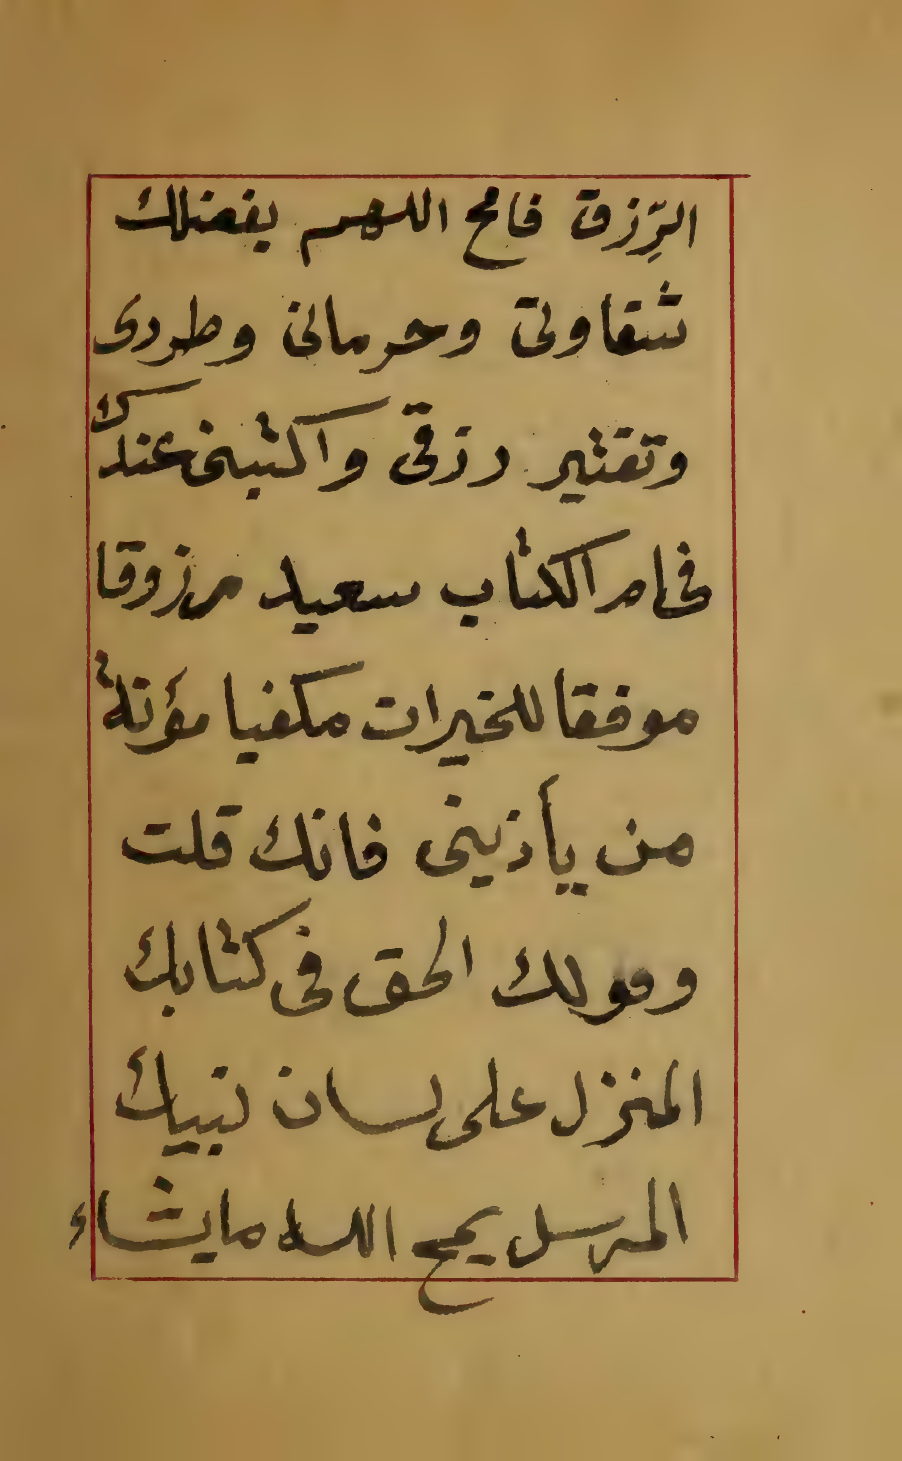 الرِّزق فامح اللهم بفضلك
شقاوتى وحرمانى وطردى
وتقتير رزقى واكتبنى عندك
فى ام الكتاب سعيد مرزوقا
موفقا للخيرات مكفيا مؤنة
من يأذينى فانك قلت
وقولك الحق فى كتابك
المنزل على لسان نبيك
المرسل يمح الله ما يشاء